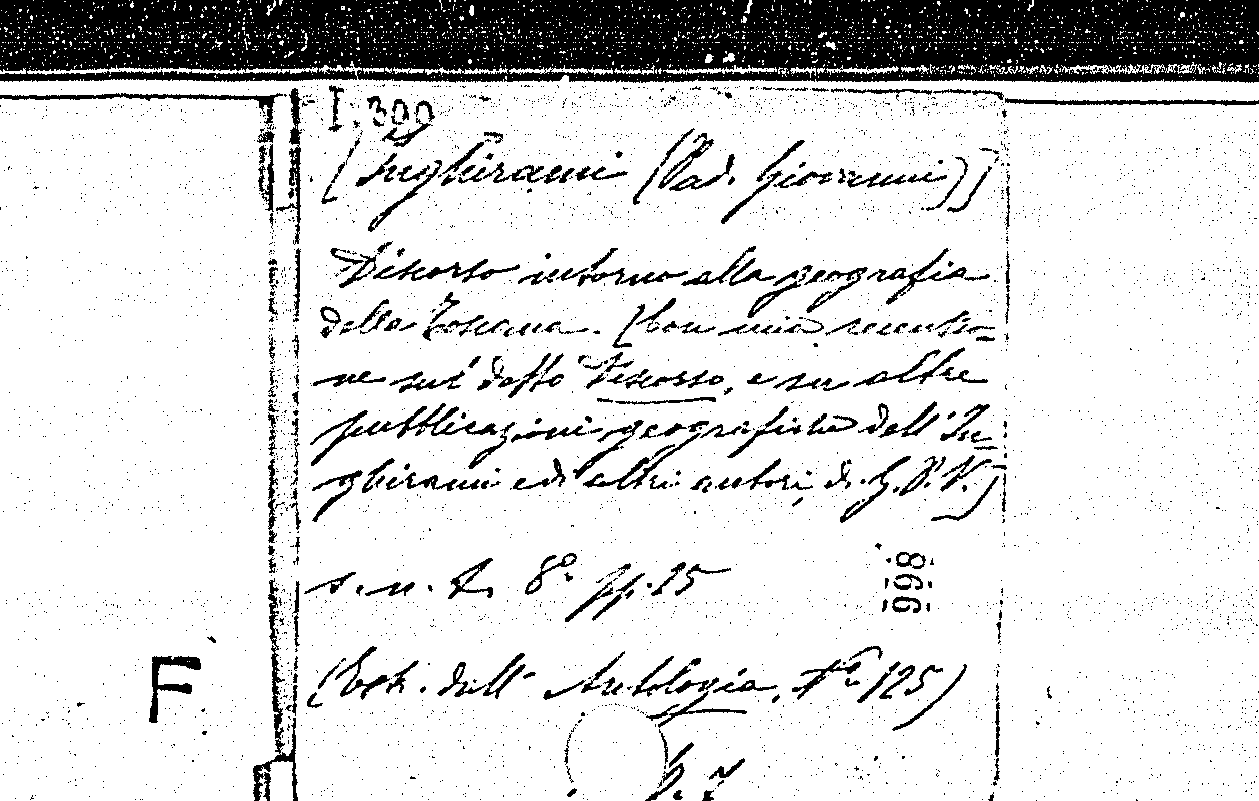 I. 300
[Inghirami (Pad. Giovanni)]
Discorso intorno alla geografia
della Toscana. [Con una recensio-
ne sul detto Discorso, e su altre
pubblicazioni geografiche dell'In-
ghirami e di altri autori, di G. P. V.]
s. n. t. 8º pp. 25
998
(Estr. dall' Antologia, Nº 125)
F